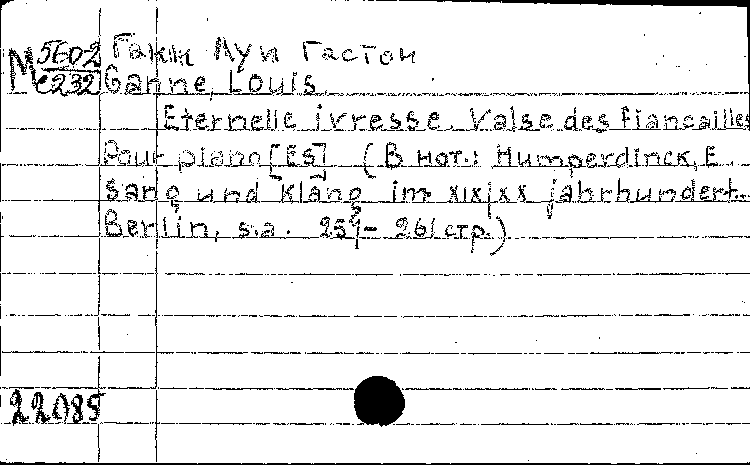 М 5602/с232 Ганн Луи Гастон
Ganne, Louis.
Eternelle ivresse. Valse des Fiancailles
Pour piano [Es] (В нот.: Humperdinck, E
Sang und Klang im XIX/XX jahrhundert.
Berlin, s.a. 259-261 стр.)
22085